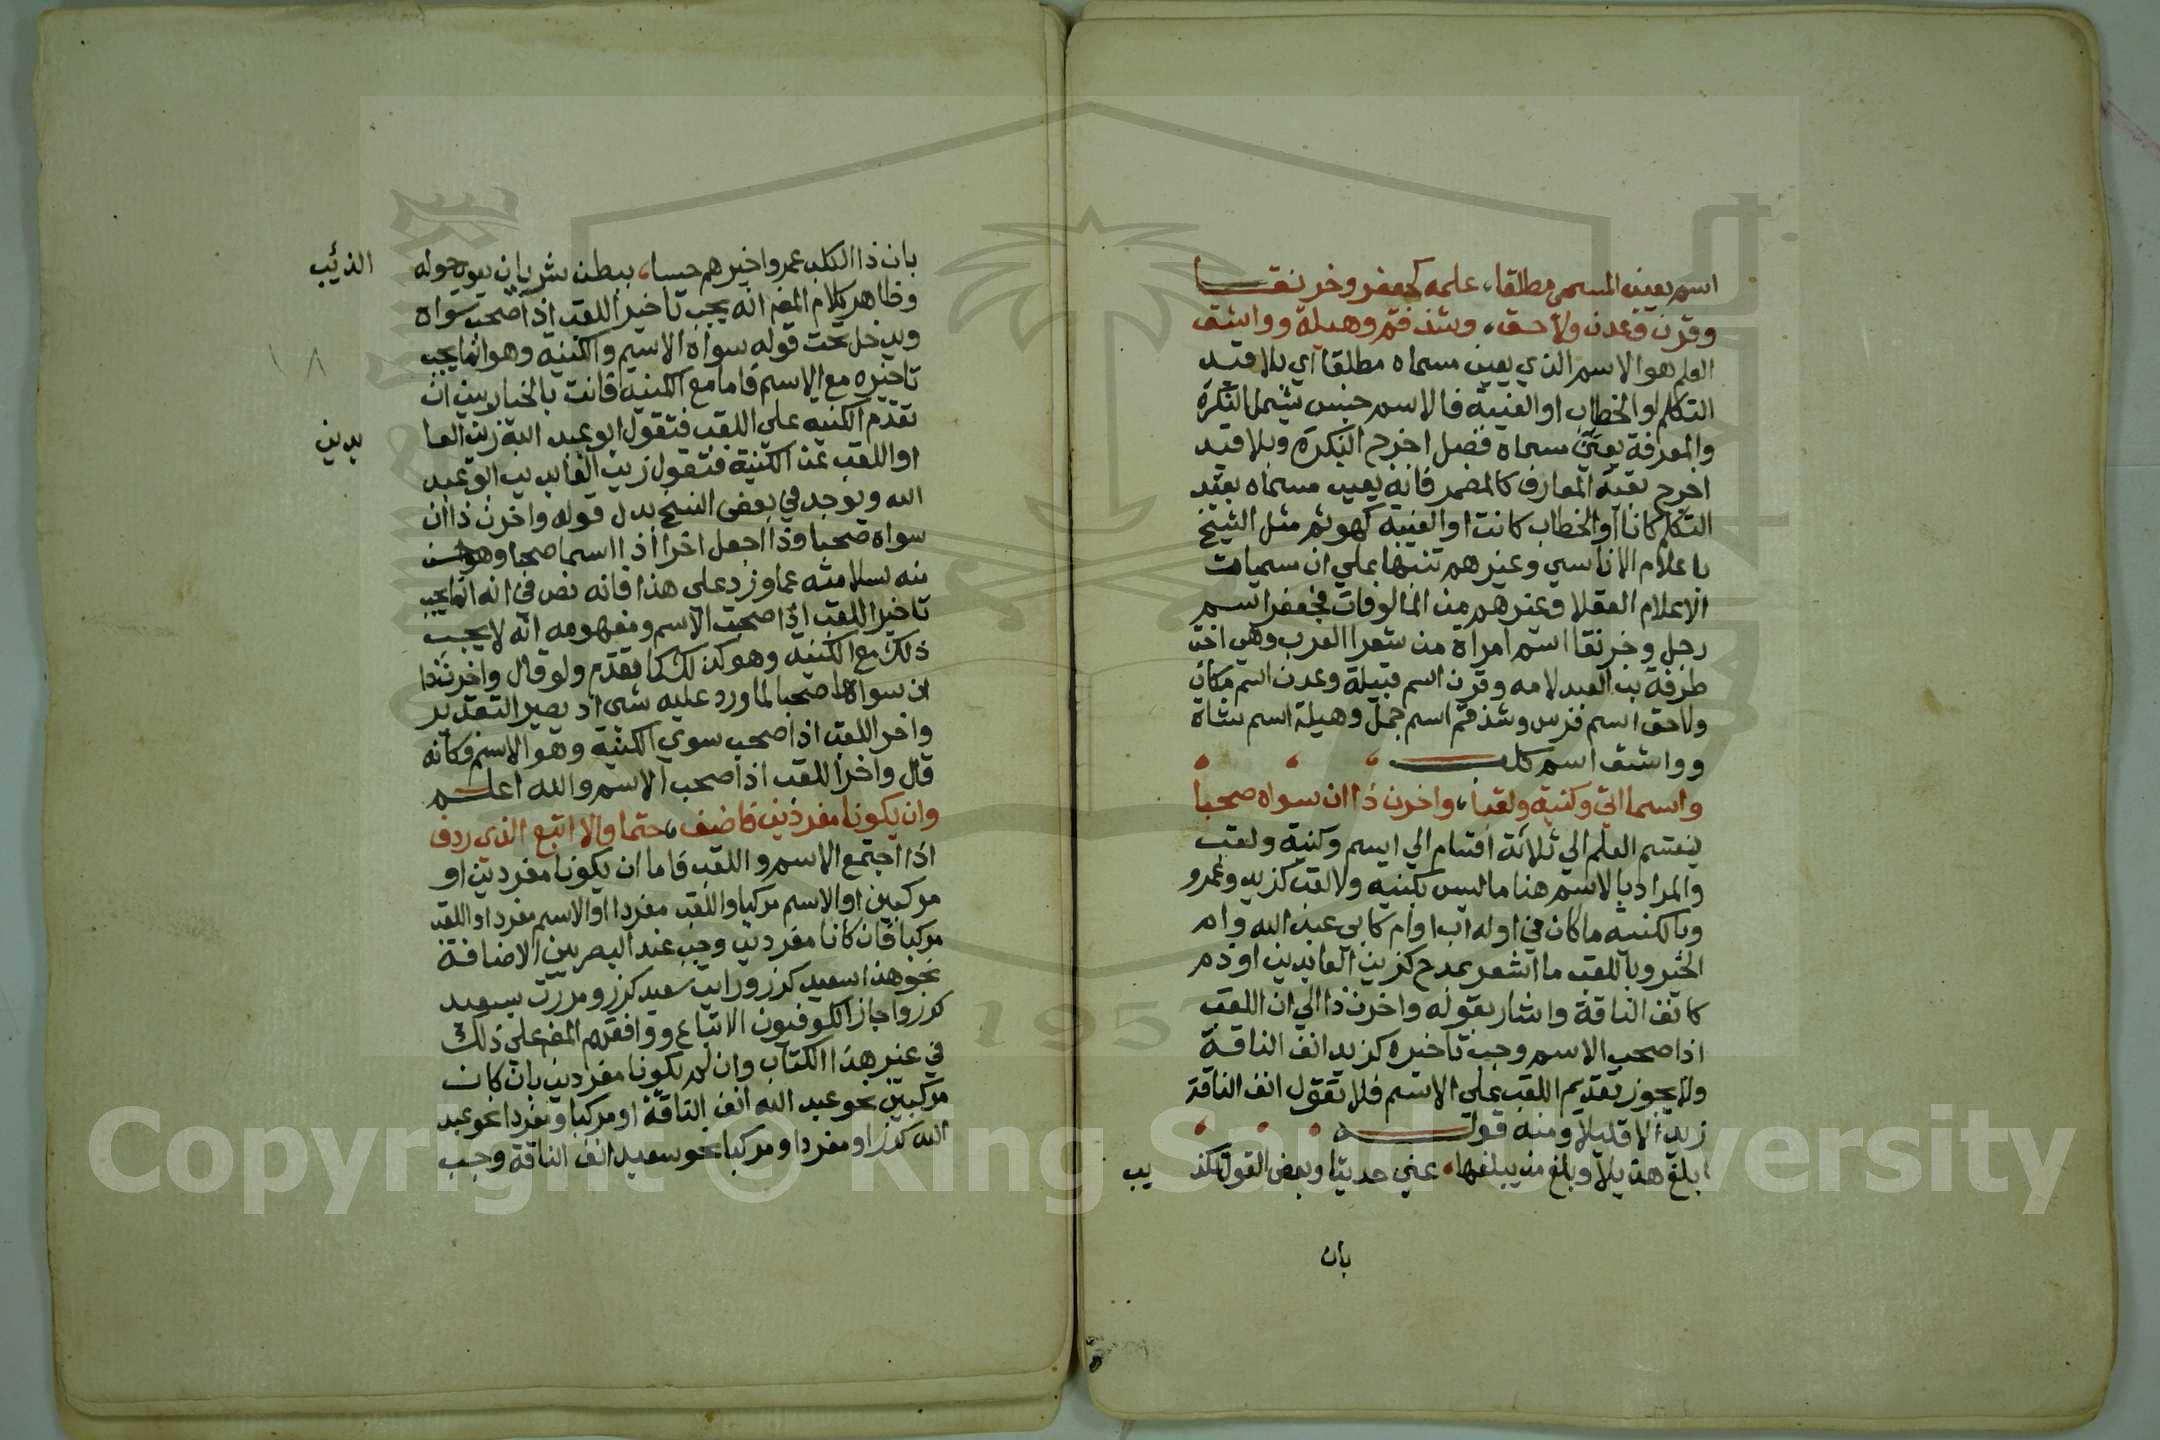 اسم يعين المسمى مطلقا، علمه كجعفر وخرنقا
وقرن وعدن ولاحق، وشذقم وهيلة وواشق
العلم هو الاسم الذي يعين مسماه مطلقا اي بلا قيد
التكلم او الخطاب او الغيبة فالاسم جنس يشمل النكرة
والمعرفة يعين مسماه فصل اخرج النكرة وبلا قيد
اخرج بقية المعارف كالمضمر فانه يعين مسماه بقيد
التكلم كانا او الخطاب كانت او الغيبة كهو ثم مثل الشيخ
باعلام الاناسي وغيرهم تنبيها على ان مسميات
الاعلام العقلا وغيرهم من المالوفات فجعفر اسم
رجل وخرنقا اسم امراة من شعرا العرب وهي اخت
طرفة بن العبد لامه وقرن اسم قبيلة وعدن اسم مكان
ولاحق اسم فرس وشذقم اسم جمل وهيلة اسم شاة
وواشق اسم كلب
واسما اتي وكنية ولقبا، واخرن ذا ان سواه صحبا
ينقسم العلم الي ثلاثة اقسام الي اسم وكنية ولقب
والمراد بالاسم هنا ما ليس بكنيه ولا لقب كزيد وعمرو
وبالكنيه ما كان في اوله اب او ام كابي عبد الله وام
الخير وباللقب ما اشعر بمدح كزين العابدين او ذم
كانف الناقة واشار بقوله واخرن ذا الي ان اللقب
اذا صحب الاسم وجب تاخيره كزيد انف الناقة
ولا يجوز تقديم اللقب علي الاسم فلا تقول انف الناقة
زيد الا قليلا ومنه قوله
ابلغ هذيلا وبلغ من يبلغها، عني حديثا وبعض القول تكذ
يب
بان
بان ذا الكلب عمرو اخيرهم حسبا، ببطن شريان يعوي حوله
الذئيب
وظاهر كلام المص انه يجب تاخير اللقب اذا صحب سواه
ويدخل تحت قوله سواه الاسم والكنية وهو انما يجب
تاخيره مع الاسم فاما مع الكنيه فانت بالخيار بين ان
تقدم الكنيه علي اللقب فتقول ابو عبد الله زين العا
بدين
او اللقب عن الكنية فتقول زين العابدين ابو عبد
الله ويوجد في بعض النسخ بدل قوله واخرن ذا ان
سواه صحبا وذا اجعل اخرا اذا اسما صحبا وهو احسن
منه سلامته عما ورد علي هذا فانه نص في انه انما يجب
تاخير اللقب اذا صحب الاسم ومفهومه انه لا يجب
ذلك مع الكنيه وهو كذلك كما تقدم ولو قال واخرن ذا
ان سواها صحبا لما ورد عليه شي اذ يصير التقدير
واخر اللقب اذا صحب سوي الكنية وهو الاسم فكانه
قال واخر اللقب اذا صحب الاسم والله اعلم
وان يكونا مفردين فاضف، حتما والا اتبع الذي ردف
اذا اجتمع الاسم واللقب فاما ان يكونا مفردين او
مركبين او الاسم مركبا واللقب مفردا او الاسم مفردا واللقب
مركبا فان كانا مفردين وجب عند البصريين الاضافة
نحو هذا سعيد كرز ورايت سعيد كرز ومررت بسعيد
كرز واجاز الكوفيون الاتباع ووافقهم المص علي ذلك
في غير هذا الكتاب وان لم يكونا مفردين بان كان
مركبين نحو عبد الله انف الناقة او مركبا ومفردا نحو عبد
الله كرز او مفردا ومركبا نحو سعيد انف الناقة وجب
١٨
Copyright © King Saud University
1957